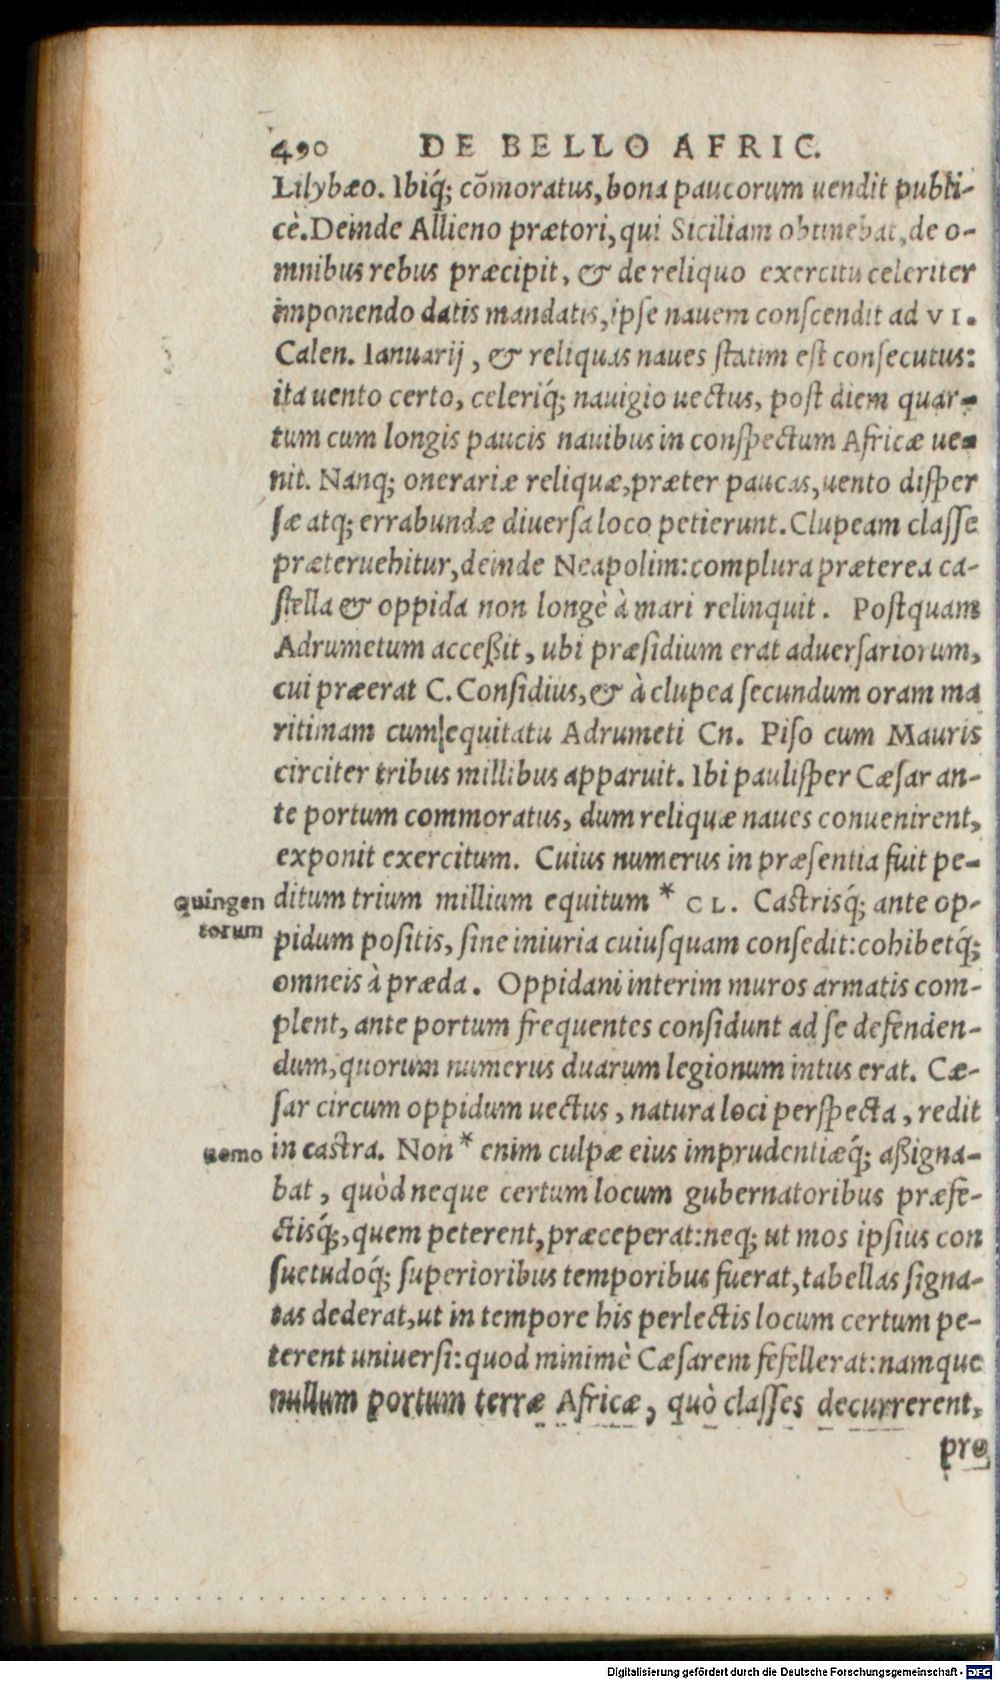 490 DE BELLO AFRIC.
Lilybæo. Ibiq́; cōmoratus, bona paucorum uendit publi-
cè. Deinde Allieno prætori, qui Siciliam obtinebat, de o-
mnibus rebus præcipit, & de reliquo exercitu celeriter
imponendo datis mandatis, ipse nauem conscendit ad VI.
Calen. Ianuarij, & reliquas naues statim est consecutus:
ita uento certo, celeriq́; nauigio uectus, post diem quar-
tum cum longis paucis nauibus in conspectum Africæ ue-
nit. Nanq; onerariæ reliquæ, præter paucas, uento disper
sæ atq; errabundæ diuersa loco petierunt. Clupeam classe
præteruehitur, deinde Neapolim: complura præterea ca-
stella & oppida non longè à mari relinquit. Postquam
Adrumetum acceßit, ubi præsidium erat aduersariorum,
cui præerat C. Considius, & à clupea secundum oram ma
ritimam cum equitatu Adrumeti Cn. Piso cum Mauris
circiter tribus millibus apparuit. Ibi paulisper Cæsar an-
te portum commoratus, dum reliquæ naues conuenirent,
exponit exercitum. Cuius numerus in præsentia fuit pe-
quingen ditum trium millium equitum * CL. Castrisq́; ante op-
torum pidum positis, sine iniuria cuiusquam consedit: cohibetq́;
omneis à præda. Oppidani interim muros armatis com-
plent, ante portum frequentes considunt ad se defenden-
dum, quorum numerus duarum legionum intus erat. Cæ-
sar circum oppidum uectus, natura loci perspecta, redit
nemo in castra. Non * enim culpæ eius imprudentiæq́; aßigna-
bat, quòd neque certum locum gubernatoribus præfe-
ctisq́;, quem peterent, præceperat: neq; ut mos ipsius con
suetudoq́; superioribus temporibus fuerat, tabellas signa-
tas dederat, ut in tempore his perlectis locum certum pe-
terent uniuersi: quod minimè Cæsarem fefellerat: namque
nullum portum terræ Africæ, quò classes decurrerent,
pro
Digitalisierung gefördert durch die Deutsche Forschungsgemeinschaft - DFG